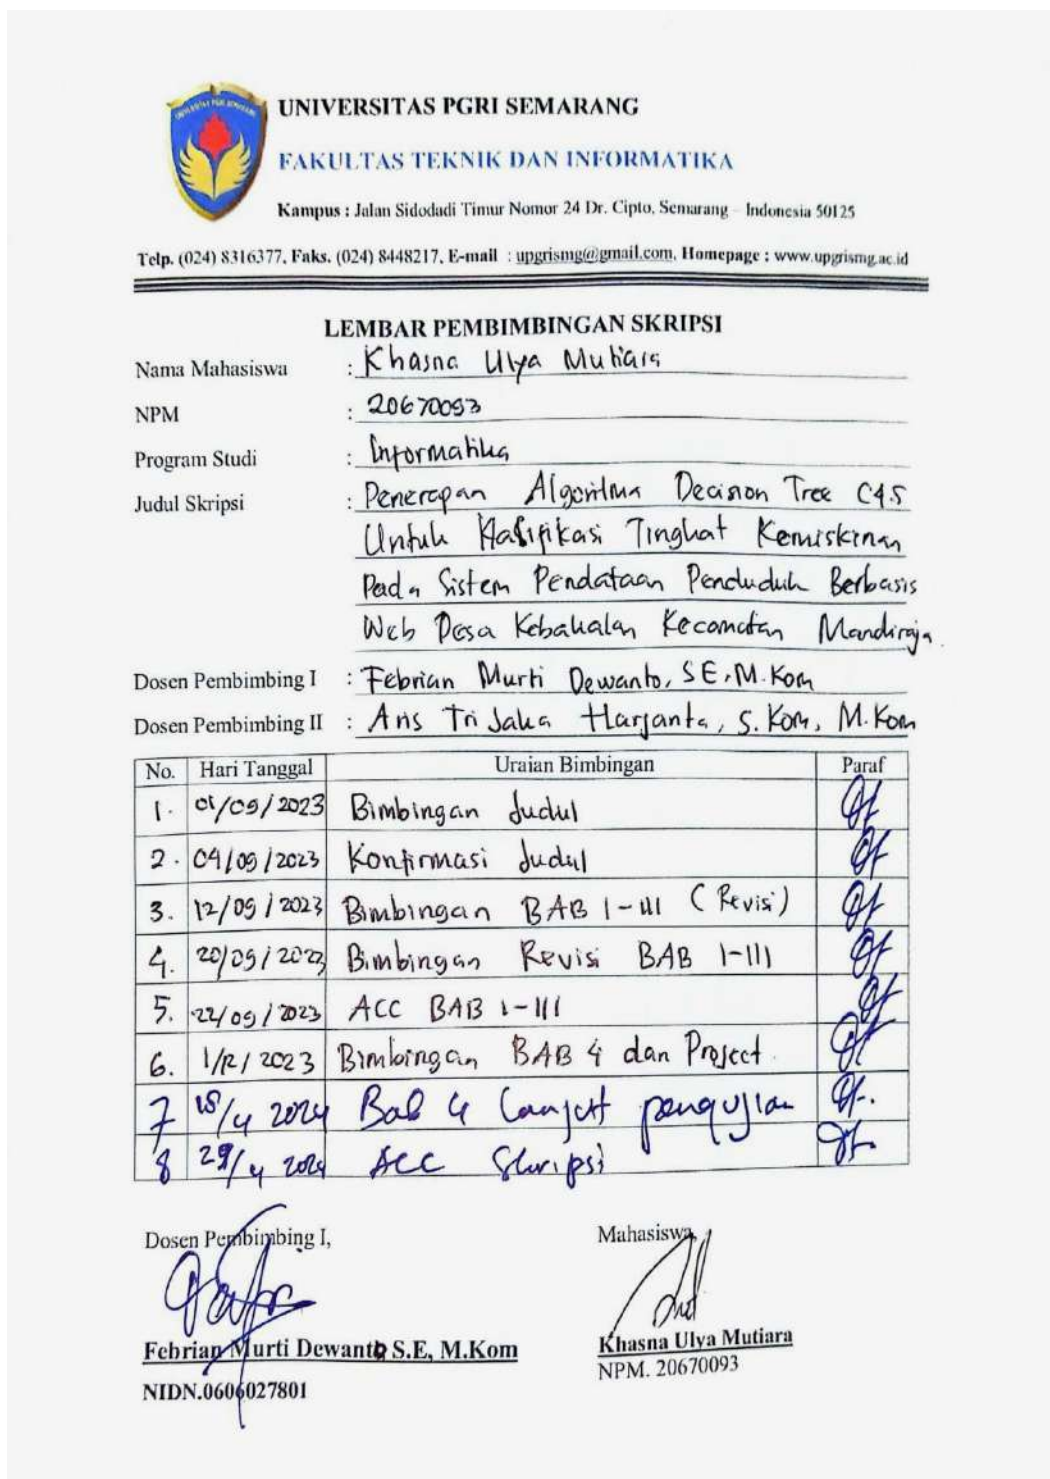 UNIVERSITAS PGRI SEMARANG
UNIVERSITAS PGRI SEMARANG
FAKULTAS TEKNIK DAN INFORMATIKA
Kampus : Jalan Sidodadi Timur Nomor 24 Dr. Cipto, Semarang – Indonesia 50125
Telp. (024) 8316377, Faks. (024) 8448217, E-mail : upgrismg@gmail.com, Homepage : www.upgrismg.ac.id
LEMBAR PEMBIMBINGAN SKRIPSI
Nama Mahasiswa : Khasna Ulya Mutiara
NPM : 20670093
Program Studi : Informatika
Judul Skripsi : Penerapan Algoritma Decision Tree C4.5
Untuk Klasifikasi Tingkat Kemiskinan
Pada Sistem Pendataan Penduduk Berbasis
Web Desa Kebakalan Kecamatan Mandiraja.
Dosen Pembimbing I : Febrian Murti Dewanto, SE, M.Kom
Dosen Pembimbing II : Aris Tri Jaka Harjanta, S.Kom, M.Kom
No. Hari Tanggal Uraian Bimbingan Paraf
1. 01/09/2023 Bimbingan Judul
2. 04/09/2023 Konfirmasi Judul
3. 12/09/2023 Bimbingan BAB I-III (Revisi)
4. 20/09/2023 Bimbingan Revisi BAB I-III
5. 22/09/2023 ACC BAB I-III
6. 1/12/2023 Bimbingan BAB 4 dan Project
7 18/4 2024 Bab 4 lanjut pengujian
8 29/4 2024 Acc Skripsi
Dosen Pembimbing I, Mahasiswa
Febrian Murti Dewanto S.E, M.Kom Khasna Ulya Mutiara
NIDN.0606027801 NPM. 20670093